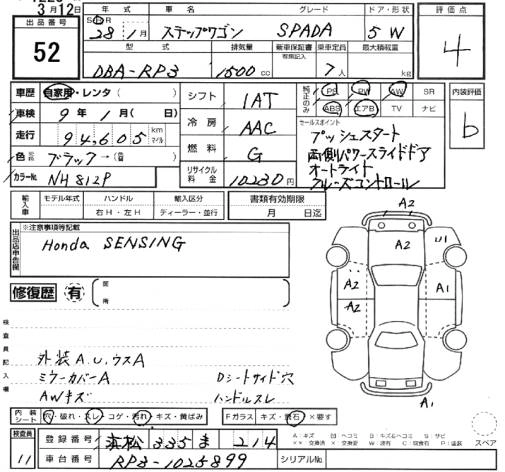 3月12日
出品番号
52
年式 車名 グレード ドア・形状
28年 1月 ステップワゴン SPADA 5 W
型式 排気量 新車保証書 乗車定員 最大積載量
DBA-RP3 1500cc 7人 kg
評価点
4
車歴 自家用・レンタ( )
車検 9年 1月( 日)
走行 94,605 km マイル
色 ブラック→( )
カラーNo NH812P
シフト IAT
冷房 AAC
燃料 G
リサイクル料金 10230円
純正のみ PS PW AW SR
ABS エアB TV ナビ
セールスポイント
プッシュスタート
両側パワースライドドア
オートライト
クルーズコントロール
内装評価
b
輸入車 モデル年式 ハンドル 輸入区分
右H・左H ディーラー・並行
書類有効期限
月 日迄
出品店申告欄
※注意事項等記載
Honda SENSING
修復歴 有
箇所
検査員記入欄
外装A.U.ウスA
ミラーカバーA
AWキズ
Dシートサイド穴
ハンドルスレ
A2 U1
A2 A2 A1
A2
A1
内装シート 穴・破れ・スレ・コゲ・汚れ・キズ・黄ばみ
Fガラス キズ・飛石・×要す
スペア
検査員
11
登録番号 浜松 335 ま 214
車台番号 RP3-1025899
シリアルNo.